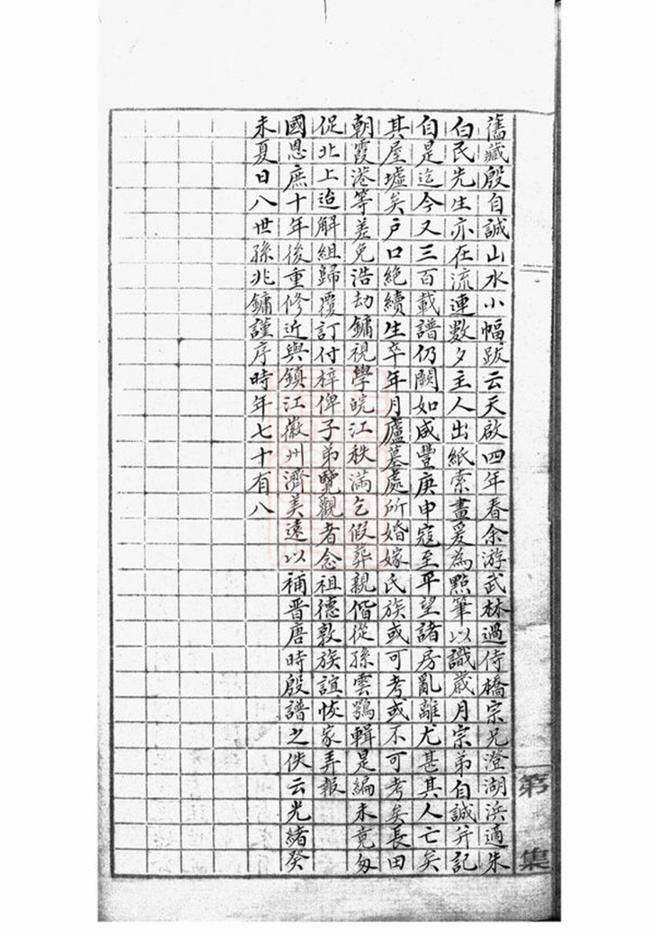 舊藏殷自誠山水小幅跋云天啟四年春余游武林過侍橋宗兄澄湖浜適朱
白民先生亦在流連數夕主人出紙索畫爰為點筆以識歲月宗弟自誠并記
自是迄今又三百載譜仍闕如咸豐庚申寇至平望諸房亂離尤甚其人亡矣
其屋墟矣戶口絕續生卒年月廬墓處所婚嫁氏族或可考或不可考矣長田
朝霞港等差免浩劫鏞視學皖江秩滿乞假葬親偕從孫雲鶚輯是編未竟匆
促北上迨解組歸覆訂付梓俾子弟覽觀者念祖德敦族誼恢家弄報
國恩庶十年後重修近與鎮江徽州濟美遠以補晉唐時殷譜之佚云光緒癸
未夏日八世孫兆鏞謹序時年七十有八
第 集